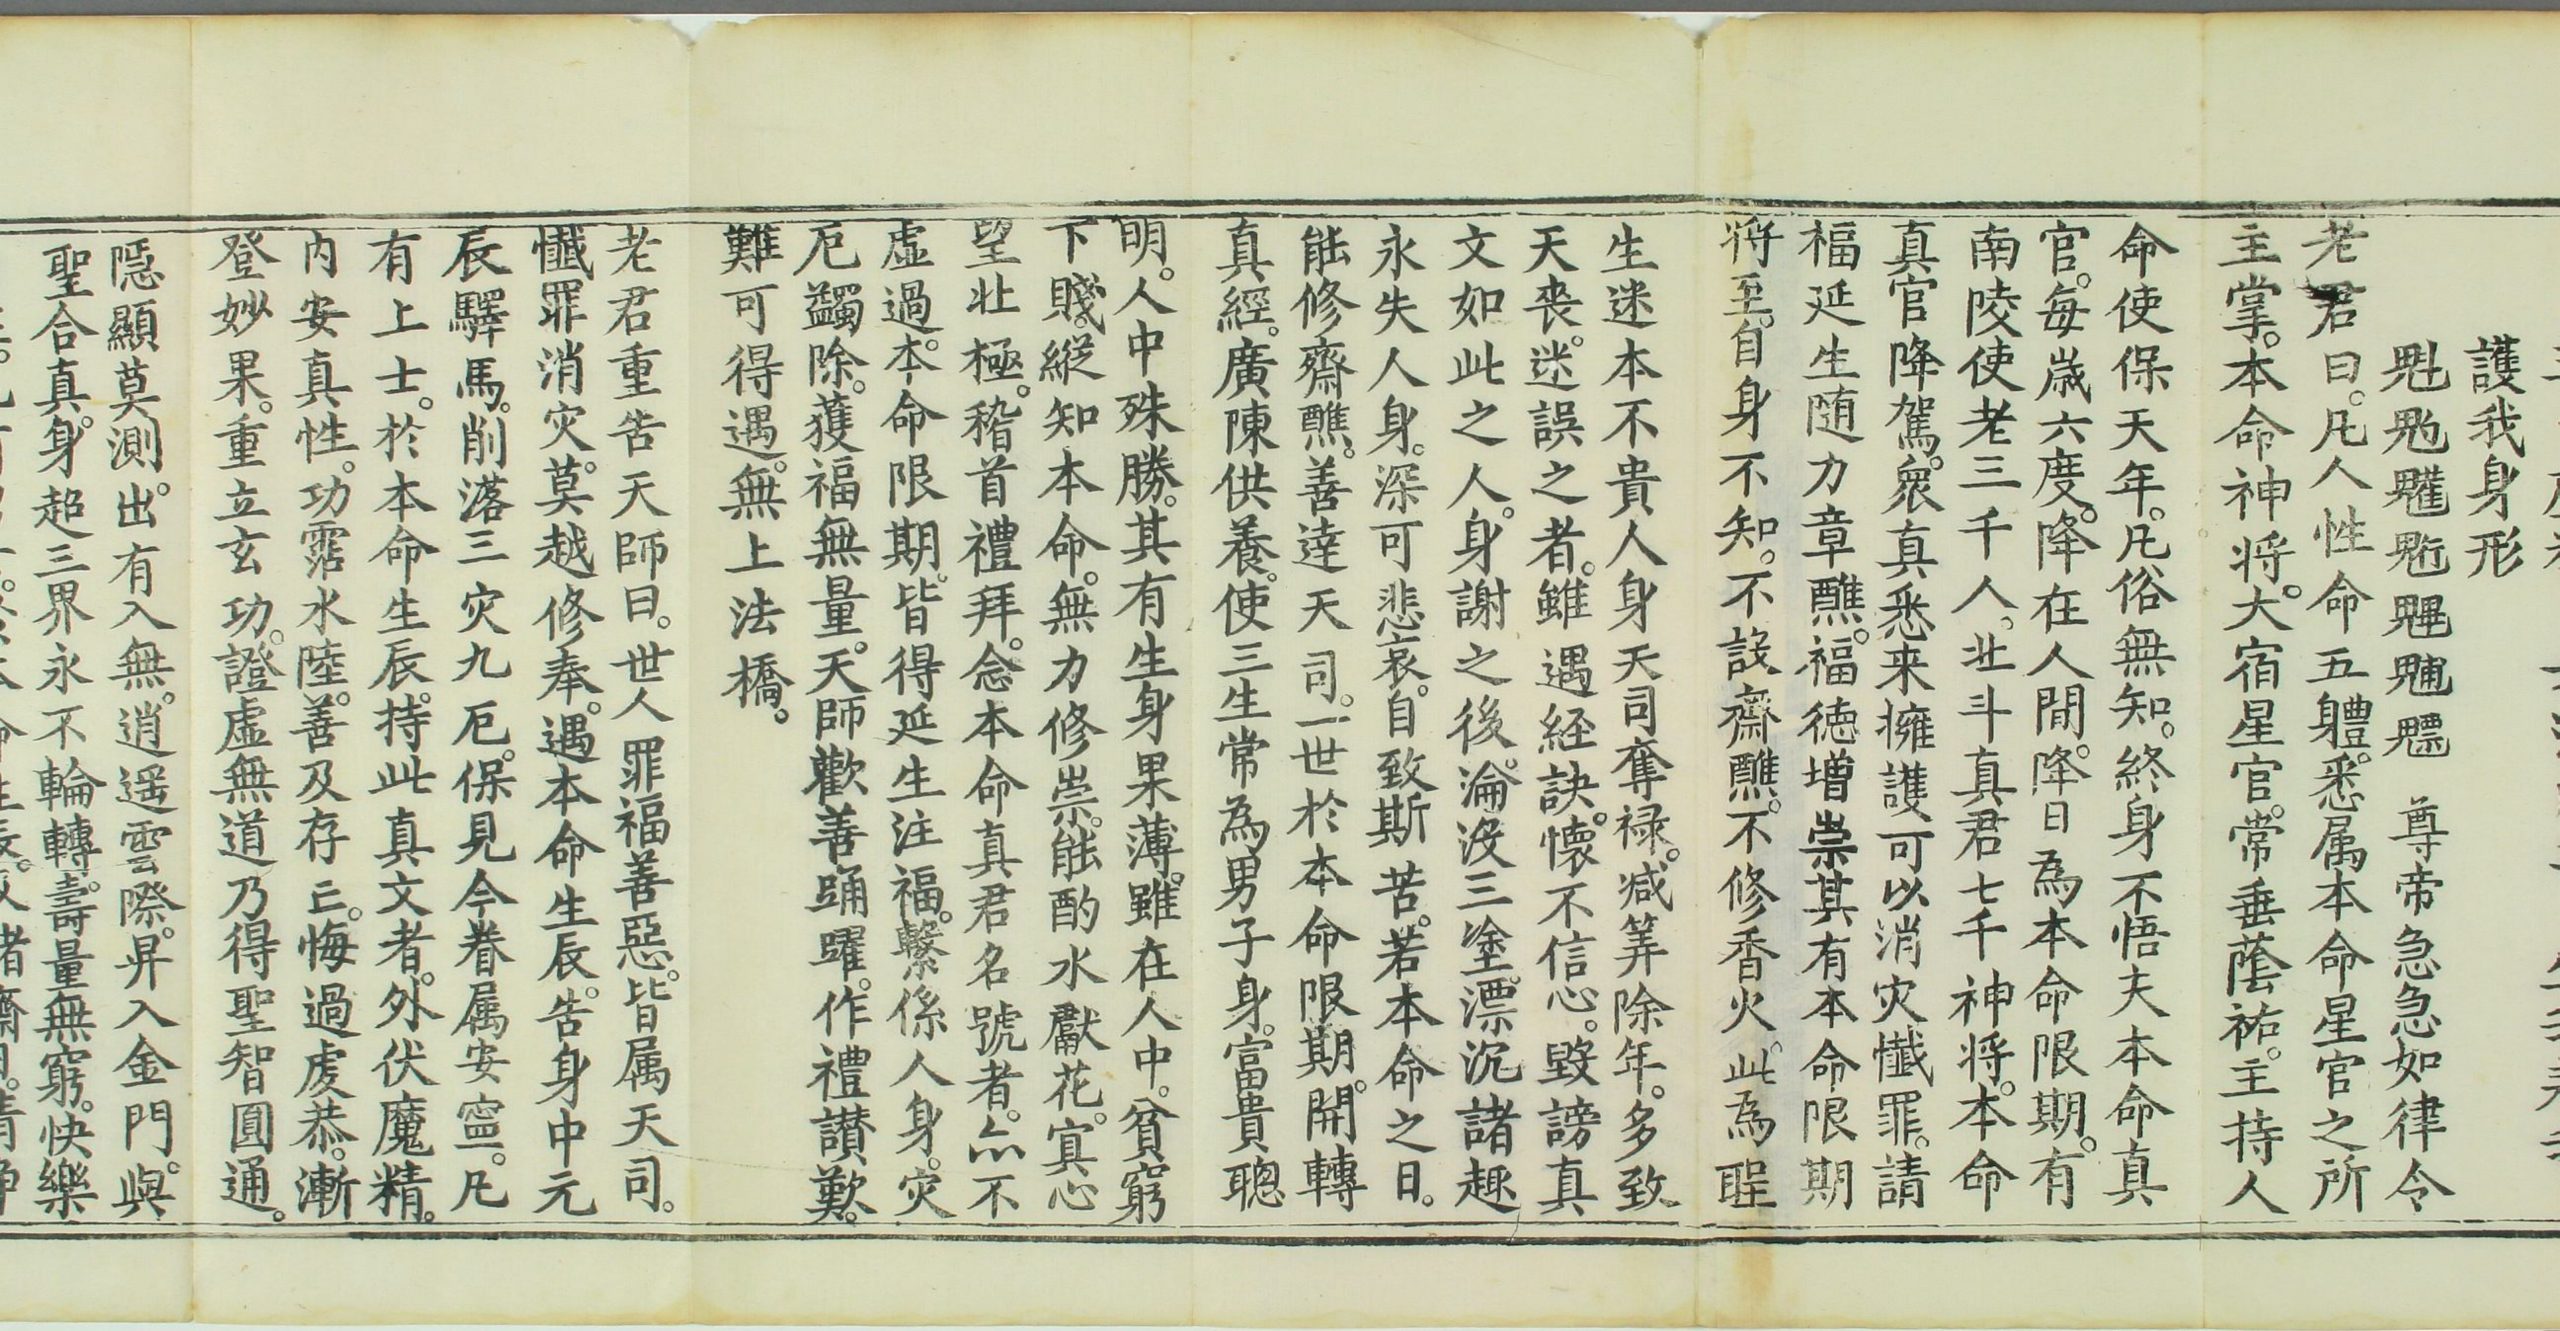 護我身形
魁𩲃䰢魒𩳐𩵄魒 尊帝急急如律令
老君曰。凡人性命五體。悉属本命星官之所
主掌。本命神将。大宿星官。常垂蔭祐。主持人
命使保天年。凡俗無知。終身不悟夫本命真
官。每歲六度。降在人間。降日為本命限期。有
南陵使老三千人。北斗真君七千神将。本命
真官降駕。衆真悉来擁護可以消灾懺罪。請
福延生随力章醮。福徳增崇其有本命限期
将至。自身不知。不設齋醮。不修香火。此為輕
生迷本不貴人身天司奪禄。减筭除年。多致
夭丧。迷誤之者。雖遇経訣。懷不信心。毀謗真
文如此之人。身謝之後。淪没三塗。漂沉諸趣
永失人身。深可悲哀。自致斯苦。若本命之日。
能修齋醮。善達天司。一世於本命限期。開轉
真經。廣陳供養。使三生常為男子身。富貴聰
明。人中殊勝。其有生身果薄。雖在人中。貧窮
下賤。縱知本命。無力修崇。能酌水獻花。寘心
望北極。稽首禮拜。念本命真君名號者。亦不
虛過。本命限期。皆得延生注福。繫係人身。灾
厄蠲除。獲福無量。天師歡善踊躍。作禮讃歎。
難可得遇。無上法橋。
老君重告天師曰。世人罪福善惡。皆属天司。
懺罪消灾。莫越修奉。遇本命生辰。告身中元
辰驛馬。削落三灾九厄。保見今眷属安寧。凡
有上士。於本命生辰。持此真文者。外伏魔精。
内安真性。功霑水陸。善及存亡。悔過虔恭。漸
登妙果。重立玄功。證虛無道乃得聖智圓通。
隠顯莫測。出有入無。逍遥雲際。昇入金門。與
聖合真。身超三界永不輪轉。壽量無窮。快樂